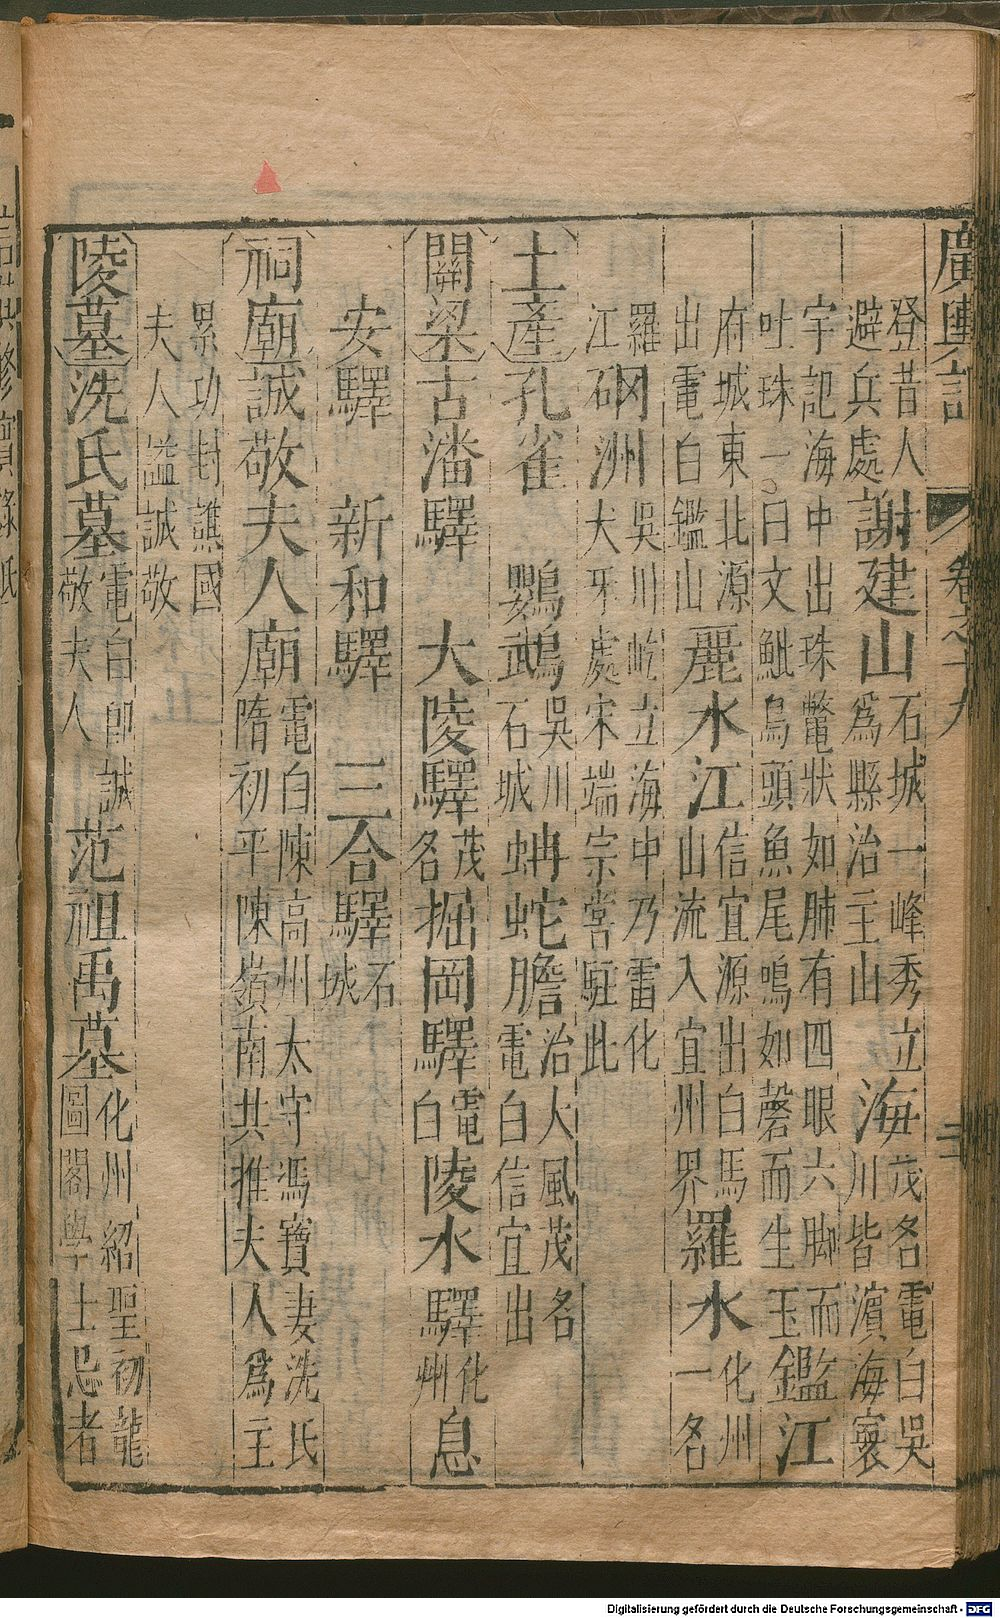 廣輿記 卷之十九 二
登昔人避兵處謝建山石城一峰秀立為縣治主山海茂名電白吳川皆濱海寰
宇記海中出珠鼈狀如肺有四眼六脚而吐珠一曰文魮鳥頭魚尾鳴如磬而生玉鑑江
府城東北源出電白鑑山麗水江信宜源出白馬山流入宜州界羅水化州一名
羅江硇洲吳川屹立海中乃雷化犬牙處宋端宗嘗駐此
土產孔雀 鸚鵡吳川石城蚺蛇膽治大風茂名電白信宜出
關梁古潘驛 大陵驛茂名掘岡驛電白陵水驛化州息
安驛 新和驛 三合驛石城
祠廟誠敬夫人廟電白陳高州太守馮寶妻洗氏隋初平陳嶺南共推夫人為主
累功封譙國夫人謚誠敬
陵墓洗氏墓電白即誠敬夫人范祖禹墓化州紹聖初龍圖閣學士忌者
Digitalisierung gefördert durch die Deutsche Forschungsgemeinschaft - DFG